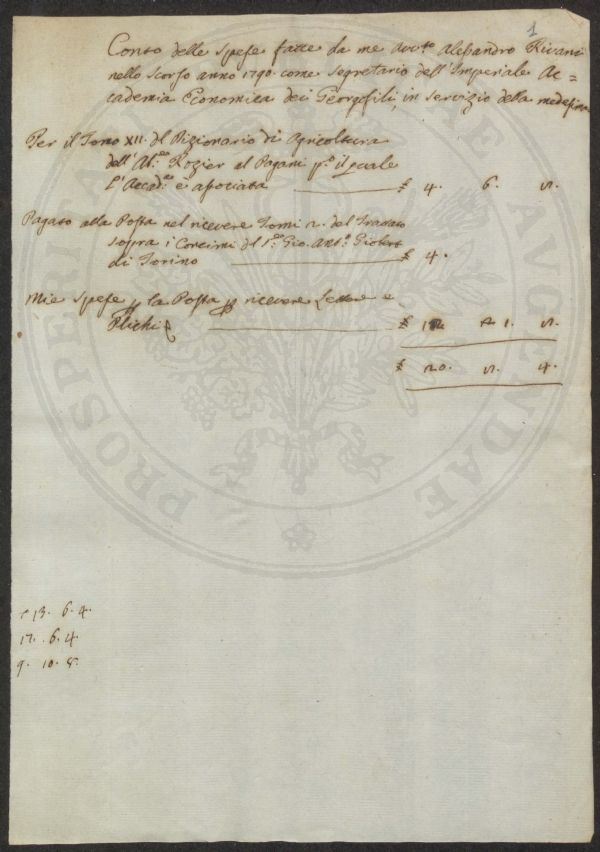 1
Conto delle Spese fatte da me Avv.to Alessandro Rivani
nello Scorso anno 1790. come Segretario dell'Imperiale Ac=
cademia Economica dei Georgofili, in servizio della medesima
Per il Tomo XII. del Dizionario di Agricoltura
dell'Ab.e Rozier al Pagani p. il quale
l'Accad.a è associata £ 4. 6. 2.
Pagato alla Posta nel ricevere Tomi 2. del Trattato
sopra i Concimi del S.e Gio. Ant.o Giobert
di Torino £ 4.
Mie Spese la Posta ricevere Lettere e
Plichi £ 12. 1. 2.
£ 20. 4.
13. 6. 4.
17. 6. 4.
9. 10. 8.
PROSPERITATI AVGENDAE